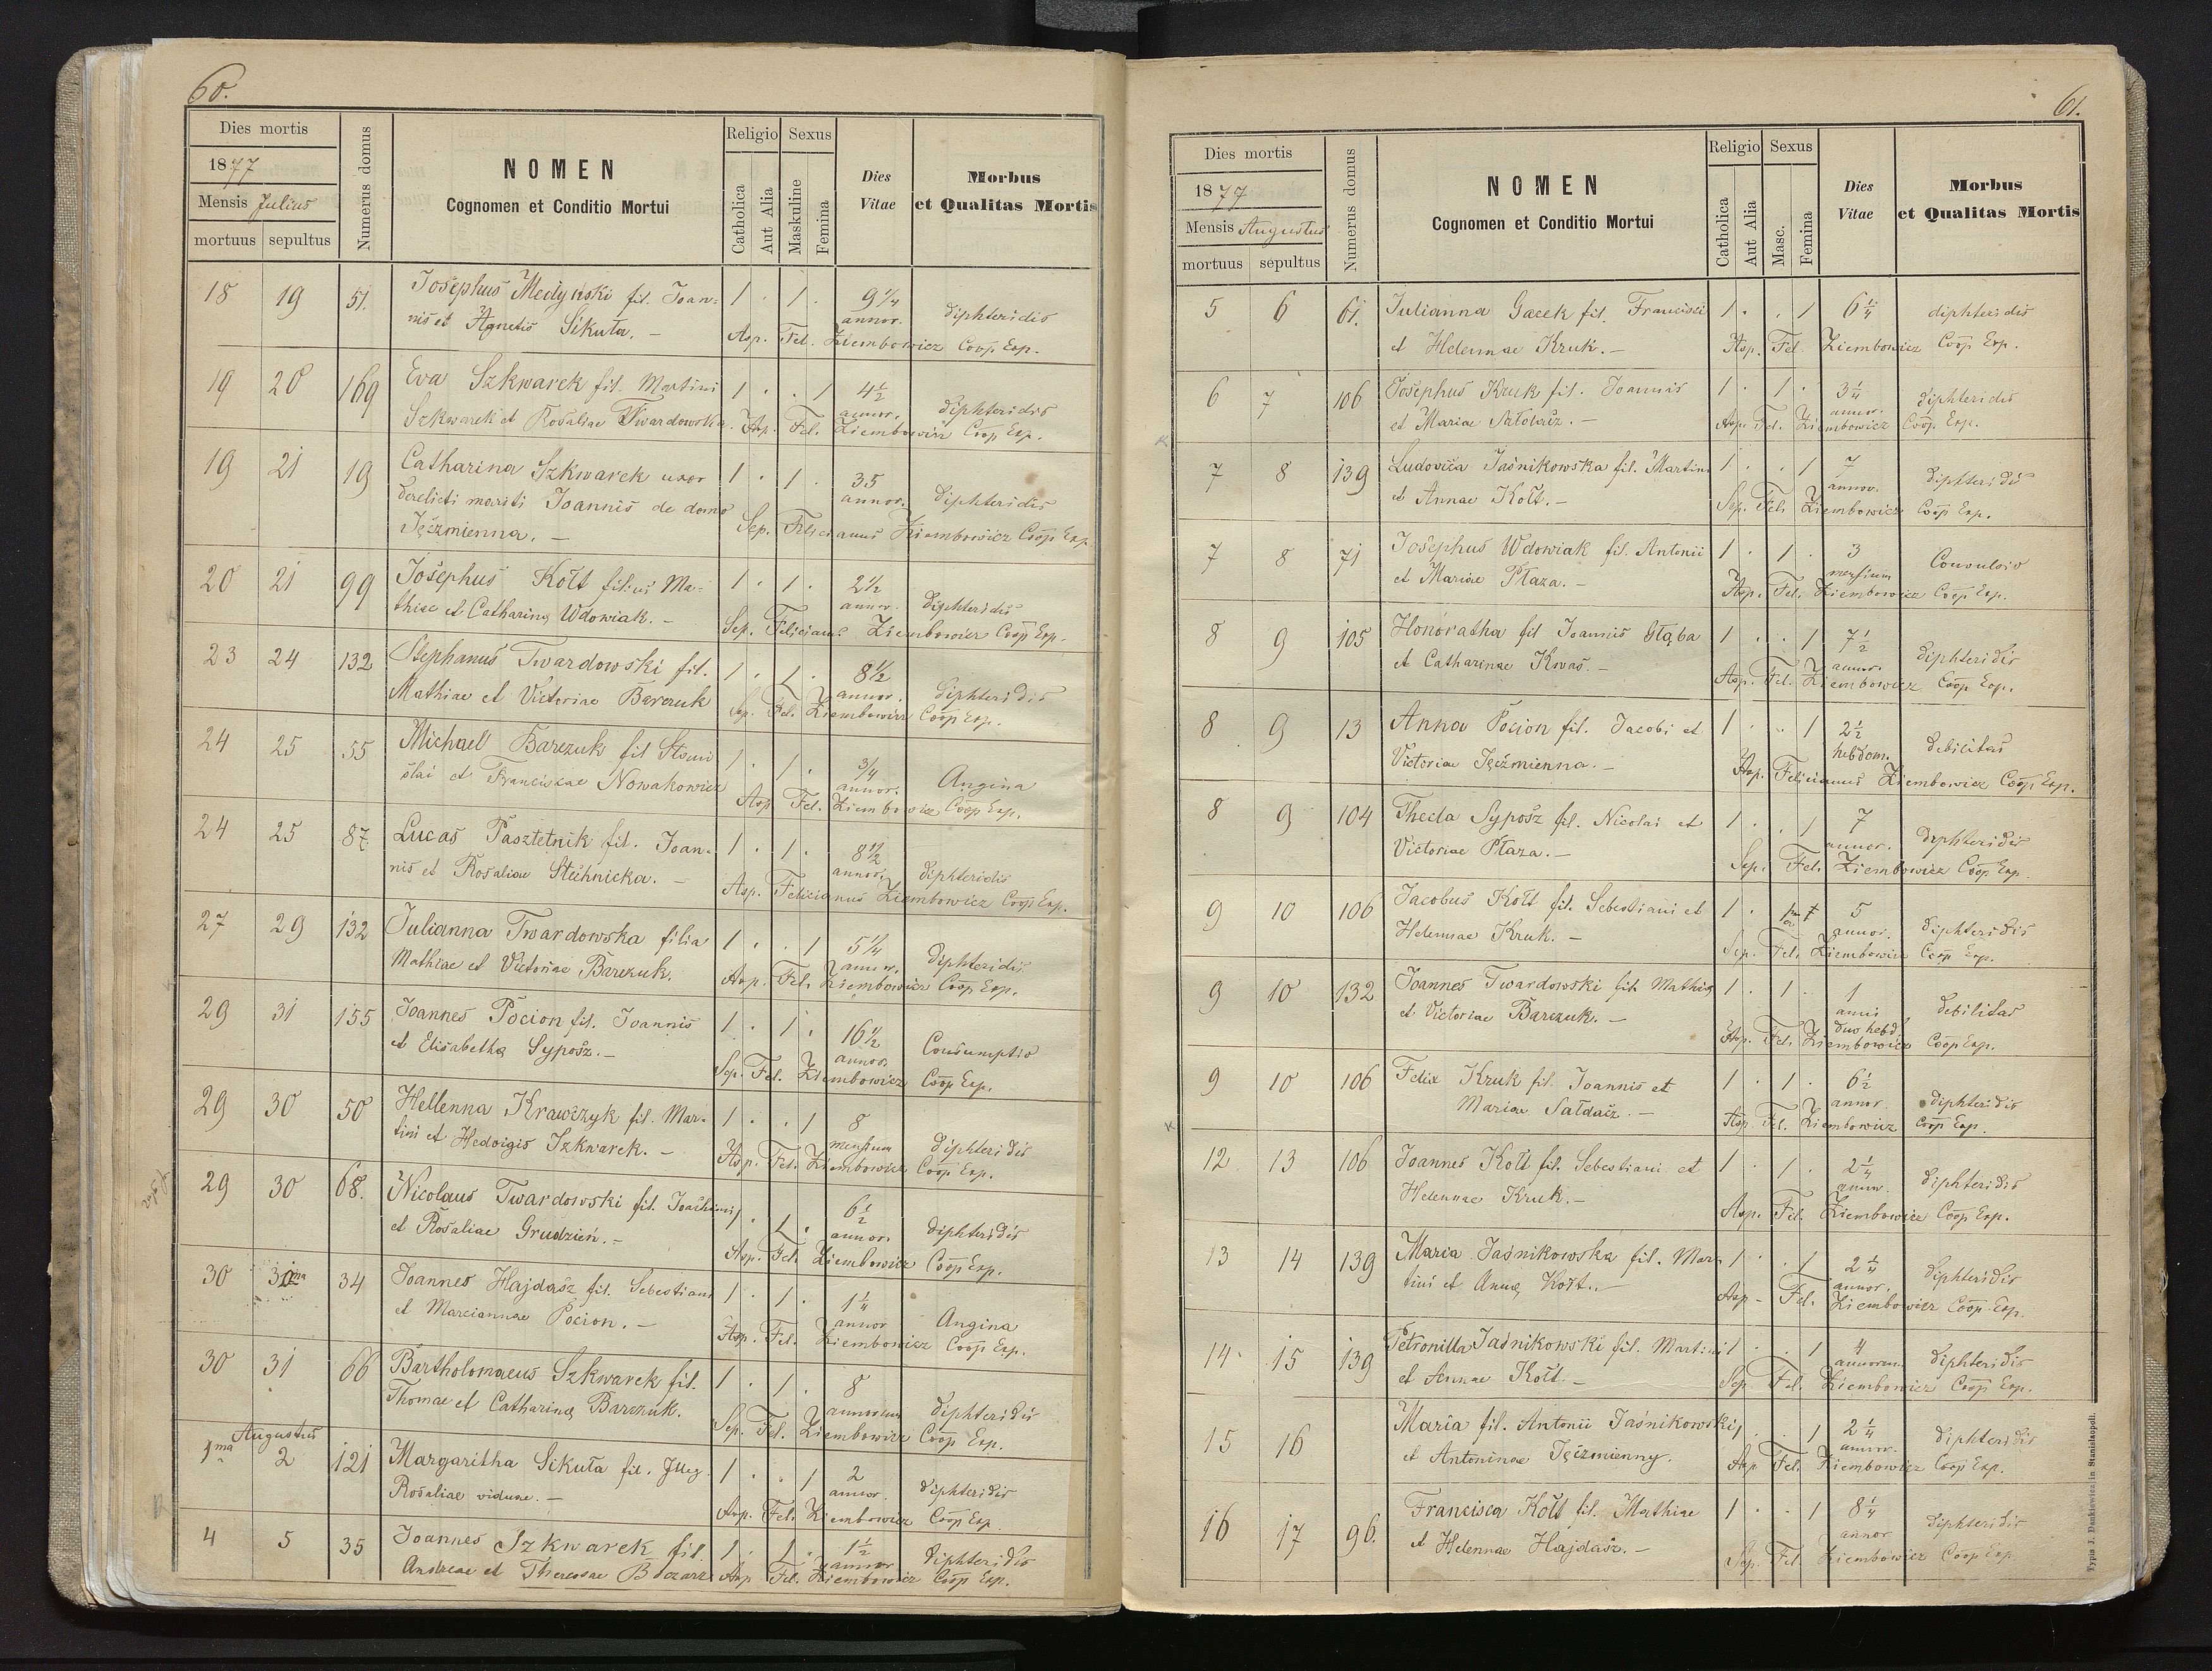 60.
Dies mortis
1877
Mensis Julius
mortuus sepultus
Numerus domus
NOMEN
Cognomen et Conditio Mortui
Religio
Catholica
Aut Alia
Sexus
Maskuline
Femina
Dies
Vitae
Morbus
et Qualitas Mortis
18 19 51. Josephus Medyński fil. Joan- 1 . 1 . 9 1/4
nis et Agnetis Sikuta. – annor. diphteridis
Asp. Fel. Ziembowicz Coop Exp.
19 20 169 Eva Szkwarek fil. Martini 1 . . 1 4 1/2
Szkwarek et Rosaliae Twardowska. annor. diphteridis
Asp. Fel. Ziembowicz Coop Exp.
19 21 19 Catharina Szkwarek uxor 1 . 1 . 35
derelicti mariti Joannis de domo annor. diphteridis
Jęczmienna. – Sep. Felicianus Ziembowicz Coop Exp
20 21 99 Josephus Kołt filius Ma- 1 . 1 . 2 1/2
thiae et Catharinę Wdowiak. – annor. diphteridis
Sep. Felicianus Ziembowicz Coop Exp.
23 24 132 Stephanus Twardowski fil. 1 . 1 . 8 1/2
Mathiae et Victoriae Barczuk annor. diphteridis
Sep. Fel. Ziembowicz Coop Exp.
24 25 55 Michael Barczuk fil Stani 1 . 1 . 3/4
slai et Franciscae Nowakowicz annor. Angina
Asp Fel. Ziembowicz Coop Exp.
24 25 87. Lucas Pasztetnik fil. Joan- 1 . 1 . 8 1/2
nis et Rosaliae Stechnicka. – annor. diphteridis
Asp. Felicianus Ziembowicz Coop Exp.
27 29 132 Julianna Twardowska filia 1 . . 1 5 1/4
Mathiae et Victoriae Barczuk. annor. diphteridis
Asp. Fel. Ziembowicz Coop Exp.
29 31 155 Joannes Pocion fil. Joannis 1 . 1 . 16 1/2
et Elisabethę Syposz. – annor. Consumptio
Sep. Fel. Ziembowicz Coop Exp.
29 30 50 Hellenna Krawczyk fil. Mar- 1 . . 1 8
tini et Hedvigis Szkwarek. – mensium diphteridis
Asp. Fel. Ziembowicz Coop Exp.
29 30 68. Nicolaus Twardowski fil. Joachimi 1 . 1 . 6 1/2
et Rosaliae Grudzień. – annor. diphteridis
Asp. Fel. Ziembowicz Coop Exp.
30 34 Joannes Hajdasz fil. Sebestiani 1 . 1 . 1 1/4
et Marciannae Pocion. – annor Angina
Asp. Fel. Ziembowicz Coop Exp.
30 31 66 Bartholomaeus Szkwarek fil. 1 . 1 . 8
Thomae et Catharinę Barczuk. annorum diphteridis
Sep. Fel. Ziembowicz Coop Exp.
Augustus
1ma 2 121 Margaritha Sikuta fil. Illeg. 1 . . 1 2
Rosaliae viduae. – annor. diphteridis
Asp. Fel. Ziembowicz Coop Exp
4 5 35 Joannes Szkwarek fil. 1 . 1 . 1 1/2
Andreae et Theresae annor diphteridis
Asp Fel. Ziembowicz Coop Exp.
61.
Dies mortis
1877
Mensis Augustus
mortuus sepultus
Numerus domus
NOMEN
Cognomen et Conditio Mortui
Religio
Catholica
Aut Alia
Sexus
Masc.
Femina
Dies
Vitae
Morbus
et Qualitas Mortis
5 6 61. Julianna Gacek fil. Francisci 1 . . 1 6 1/4 diphteridis
et Helennae Kruk. – Asp. Fel Ziembowicz Coop Exp.
6 7 106 Josephus Kruk fil. Joannis 1 . 1 . 3 1/4 diphteridis
et Mariae – annor.
Asp. Fel. Ziembowicz Coop. Exp.
7 8 139 Ludovica Jaśnikowska fil. Martini 1 . . 1 7 diphteridis
et Annae Kołt. – annor.
Sep. Fel. Ziembowicz Coop Exp.
7 8 71 Josephus Wdowiak fil. Antonii 1 . 1 . 3 Convulsio
et Mariae Płaza. – mensium
Asp. Fel. Ziembowicz Coop Exp.
8 9 105 Honoratha fil Joannis Głąba 1 . . 1 7 1/2 diphteridis
et Catharinae Kwas. – annor.
Asp. Fel. Ziembowicz Coop Exp.
8 9 13 Anna Pocion fil. Jacobi et 1 . . 1 2 1/2 debilitas
Victoriae Jęczmienna. – hebdom.
Asp. Felicianus Ziembowicz Coop Exp.
8 9 104 Thecla Syposz fil. Nicolai et 1 . . 1 7 diphteridis
Victoriae Płaza. – annor.
Sep. Fel. Ziembowicz Coop Exp
9 10 106 Jacobus Kołt fil. Sebestiani et 1 . 5 diphteridis
Helennae Kruk. – annor.
Sep. Fel. Ziembowicz Coop Exp.
9 10 132 Joannes Twardowski fil. Mathię 1 . 1 . 1 debilitas
et Victoriae Barczuk. – anni
duo hebd.
Asp. Fel. Ziembowicz Coop Exp.
9 10 106 Felix Kruk fil. Joannis et 1 . 1 . 6 1/2
Mariae Sałdacz. – annor diphteridis
Asp. Fel. Ziembowicz Coop Exp.
12 13 106 Joannes Kołt fil. Sebestiani et 1 . 1 . 2 1/4 diphteridis
Helennae Kruk. – annor.
Asp. Fel. Ziembowicz Coop Exp.
13 14 139 Maria Jaśnikowska fil. Mar- 1 . . 1 2 1/4 diphteridis
tini et Annę Kołt. – annor.
Asp – Fel. Ziembowicz Coop Exp.
14 15 139 Petronilla Jaśnikowski fil. Martini 1 . . 1 4 diphteridis
et Annae Kołt. – annorum
Sep. Fel. Ziembowicz Coop Exp.
15 16 Maria fil. Antonii Jaśnikowski 1 . . 1 2 1/4 diphteridis
et Antoninae Jęczmienny. annor.
Asp Fel. Ziembowicz Coop Exp.
16 17 96. Francisca Kołt fil. Mathiae 1 . . 1 8 1/4 diphteridis
et Helennae Hajdasz. – annor
Asp. Fel Ziembowicz Coop Exp
Typis J. Dankiewicz in Stanislapoli.